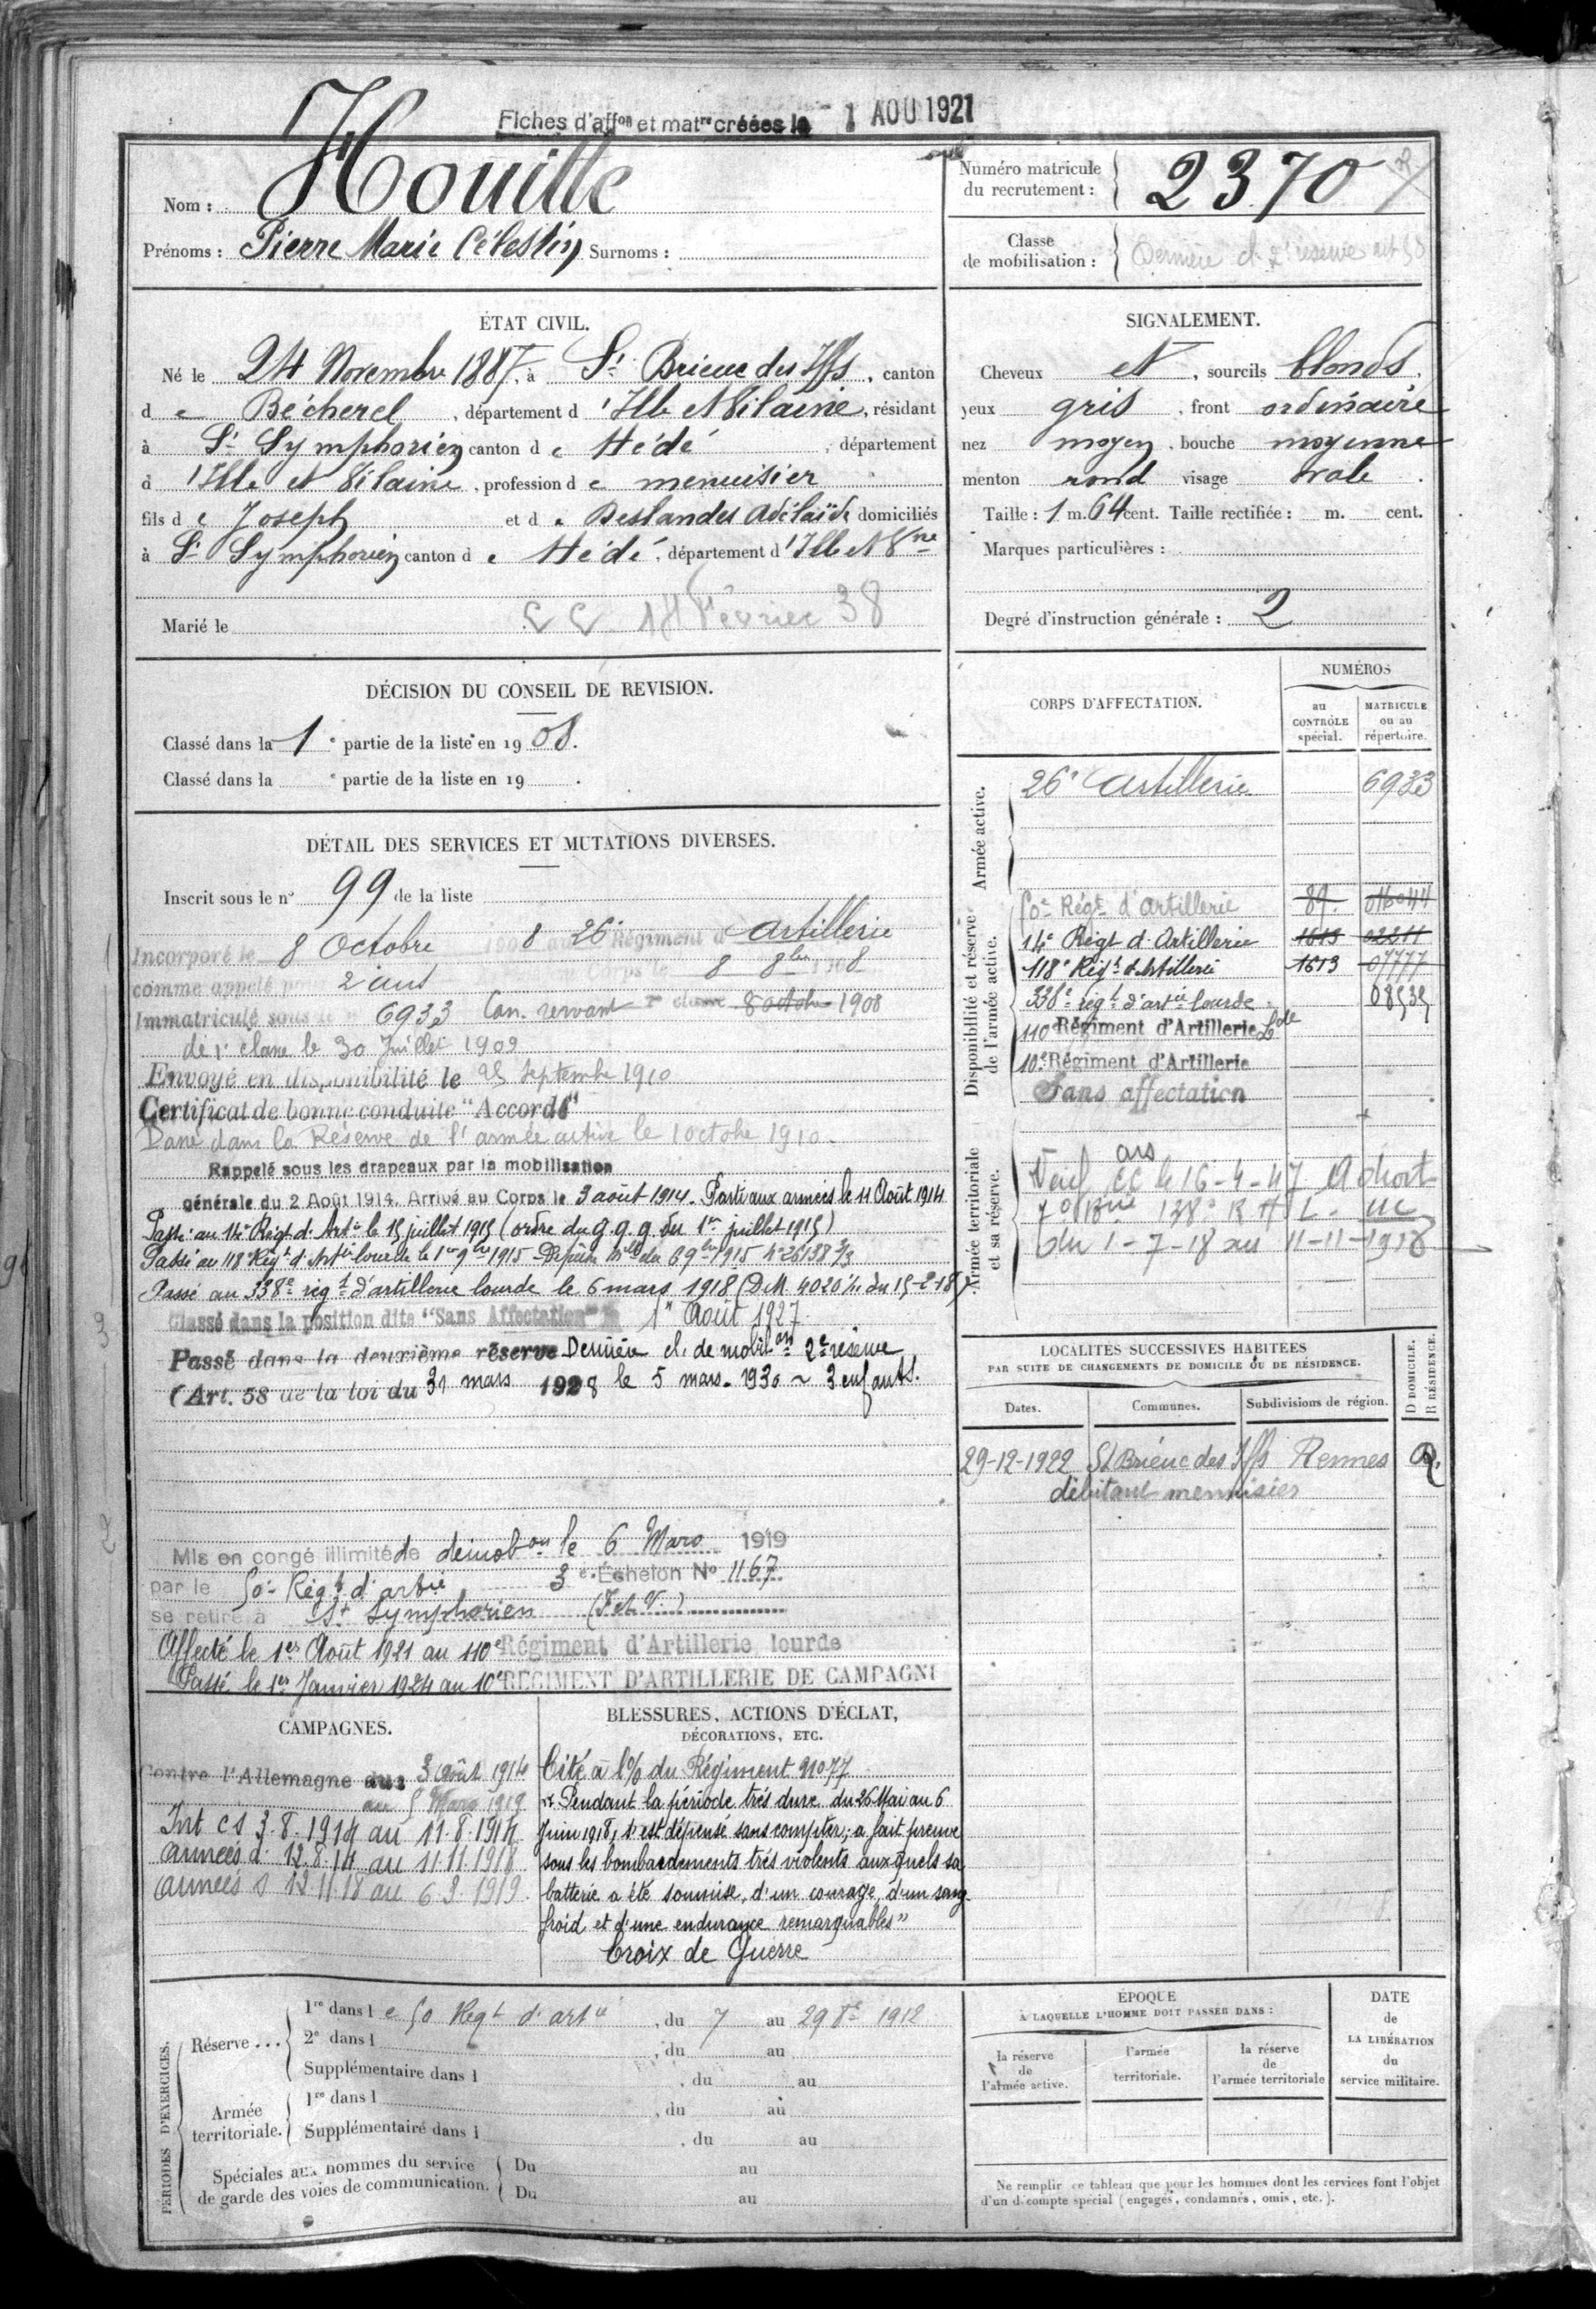 Fiches d'affon et matre créées le 1 AOU 1921
Nom : Houitte
Prénoms : Pierre Marie Célestin Surnoms :
Numéro matricule du recrutement : 2370
Classe de mobilisation : Dernière cl. 2e réserve art 58
ÉTAT CIVIL.
Né le 24 Novembre 1887, à St Brieuc des Iffs, canton
de Bécherel, département d'Ille et Vilaine, résidant
à St Symphorien canton de Hédé, département
d'Ille et Vilaine, profession de menuisier
fils de Joseph et de Deslandes Adélaïde domiciliés
à St Symphorien canton de Hédé, département d'Ille et Vne
Marié le
14 Février 38
SIGNALEMENT.
Cheveux et, sourcils blonds.
yeux gris, front ordinaire
nez moyen, bouche moyenne
menton rond visage ovale.
Taille : 1 m. 64 cent. Taille rectifiée : m. cent.
Marques particulières :
Degré d'instruction générale : 2
DÉCISION DU CONSEIL DE REVISION.
Classé dans la 1e partie de la liste en 1908.
Classé dans la e partie de la liste en 19 .
DÉTAIL DES SERVICES ET MUTATIONS DIVERSES.
Inscrit sous le n° 99 de la liste
Incorporé le 8 Octobre 1908 au 26e Régiment d'Artillerie
comme appelé pour 2 ans au Corps le 8 8bre 1908
Immatriculé sous le n° 6933 Can. servant 2e classe 8 octobre 1908
de 1e classe le 30 Juillet 1909
Envoyé en disponibilité le 25 Septembre 1910
Certificat de bonne conduite "Accordé"
Passé dans la Réserve de l'armée active le 1 octobre 1910.
Rappelé sous les drapeaux par la mobilisation
générale du 2 Août 1914. Arrivé au Corps le 3 août 1914. Parti aux armées le 11 Août 1914
Passé au 14e Régt d'Artie le 15 juillet 1915 (ordre du G.Q.G. du 1er juillet 1915)
Passé au 118e Régt d'Artie lourde le 1er 9bre 1915 - Dépêche mlle du 6 9bre 1915 n° 26138 3/3
Passé au 338e régt d'artillerie lourde le 6 mars 1918 (DM. 4020 du 15-2-18)
Classé dans la position dite "Sans Affectation" le 1er Août 1927
Passé dans la deuxième réserve Dernière cl. de mobilon 2e réserve
(Art. 58 de la loi du 31 mars 1928 le 5 mars 1930 ~ 3 enfants.
Mis en congé illimité de démobon le 6 Mars 1919
par le 50e Régt d'artie 3e Échelon N° 1167
se retire à St Symphorien (I et V.)
Affecté le 1er Août 1921 au 110e Régiment d'Artillerie lourde
Passé le 1er Janvier 1924 au 10e RÉGIMENT D'ARTILLERIE DE CAMPAGNE
CORPS D'AFFECTATION.
NUMÉROS
au CONTRÔLE spécial.
MATRICULE ou au répertoire.
Armée active.
26e Artillerie 6933
Disponibilité et réserve de l'armée active.
50e Régt d'Artillerie 89. 016044
14e Régt d'Artillerie 1613 02211
118e Régt d'Artillerie 1613 07777
338e régt d'artie lourde 08535
110e Régiment d'Artillerie Lde
10e Régiment d'Artillerie
Sans affectation
Armée territoriale et sa réserve.
le 16-4-47 A droit
7e Bie 138e R A L. UC
du 1-7-18 au 11-11-1918
LOCALITÉS SUCCESSIVES HABITÉES
PAR SUITE DE CHANGEMENTS DE DOMICILE OU DE RÉSIDENCE.
Dates. Communes. Subdivisions de région. D DOMICILE. R RÉSIDENCE.
29-12-1922 St Brieuc des Iffs Rennes R.
débitant menuisier
CAMPAGNES.
Contre l'Allemagne du 3 Août 1914
au 5 Mars 1919
Int CS 3.8.1914 au 11.8.1914
Armées d. 12.8.14 au 11.11.1918
Armées s 12.11.18 au 6.3.1919.
BLESSURES, ACTIONS D'ÉCLAT,
DÉCORATIONS, ETC.
Cité à l'O/ du Régiment n° 77
"Pendant la période très dure du 26 Mai au 6
Juin 1918, s'est dépensé sans compter; a fait preuve
sous les bombardements très violents auxquels sa
batterie a été soumise, d'un courage, d'un sang-
froid et d'une endurance remarquables"
Croix de Guerre
PÉRIODES D'EXERCICES.
Réserve ...
1re dans le 50 Régt d'artie, du 7 au 29 8e 1912
2e dans l , du au
Supplémentaire dans l , du au
Armée territoriale.
1re dans l , du au
Supplémentaire dans l , du au
Spéciales aux hommes du service de garde des voies de communication.
Du au
Du au
ÉPOQUE
À LAQUELLE L'HOMME DOIT PASSER DANS :
la réserve de l'armée active.
l'armée territoriale.
la réserve de l'armée territoriale
DATE de LA LIBÉRATION du service militaire.
Ne remplir ce tableau que pour les hommes dont les services font l'objet
d'un décompte spécial (engagés, condamnés, omis, etc.).